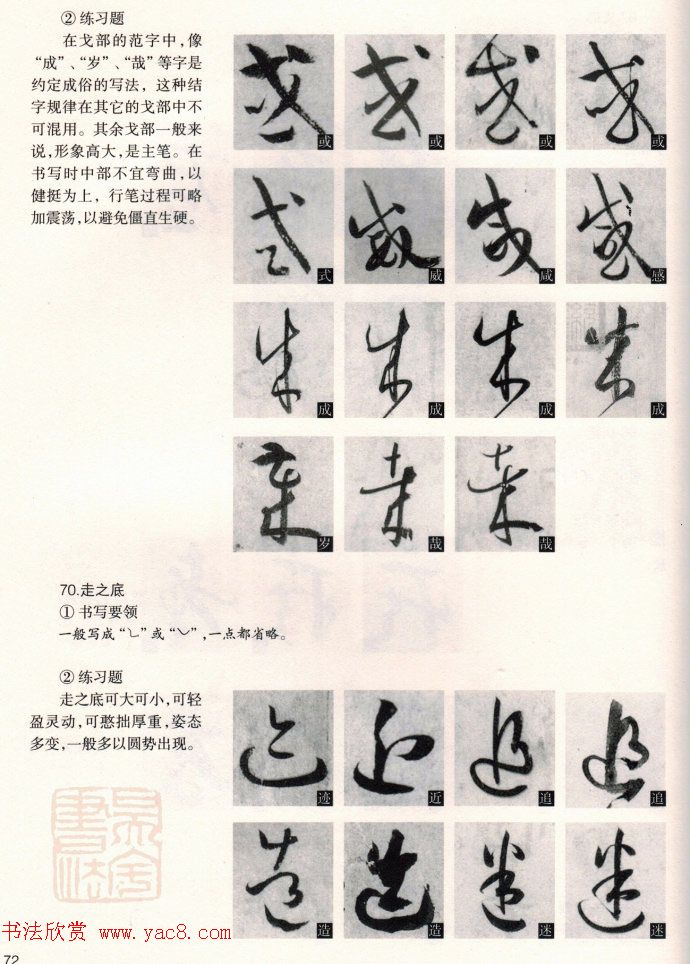 ② 练习题
在戈部的范字中，像
“成”、“岁”、“哉”等字是
约定成俗的写法，这种结
字规律在其它的戈部中不
可混用。其余戈部一般来
说，形象高大，是主笔。在
书写时中部不宜弯曲，以
健挺为上，行笔过程可略
加震荡，以避免僵直生硬。
或 或 或 或
式 威 咸 感
成 成 成 成
岁 哉 哉
70.走之底
① 书写要领
一般写成“㇄”或“㇃”，一点都省略。
② 练习题
走之底可大可小，可轻
盈灵动，可憨拙厚重，姿态
多变，一般多以圆势出现。
迹 近 追 追
造 造 迷 迷
书法欣赏 www.yac8.com
72